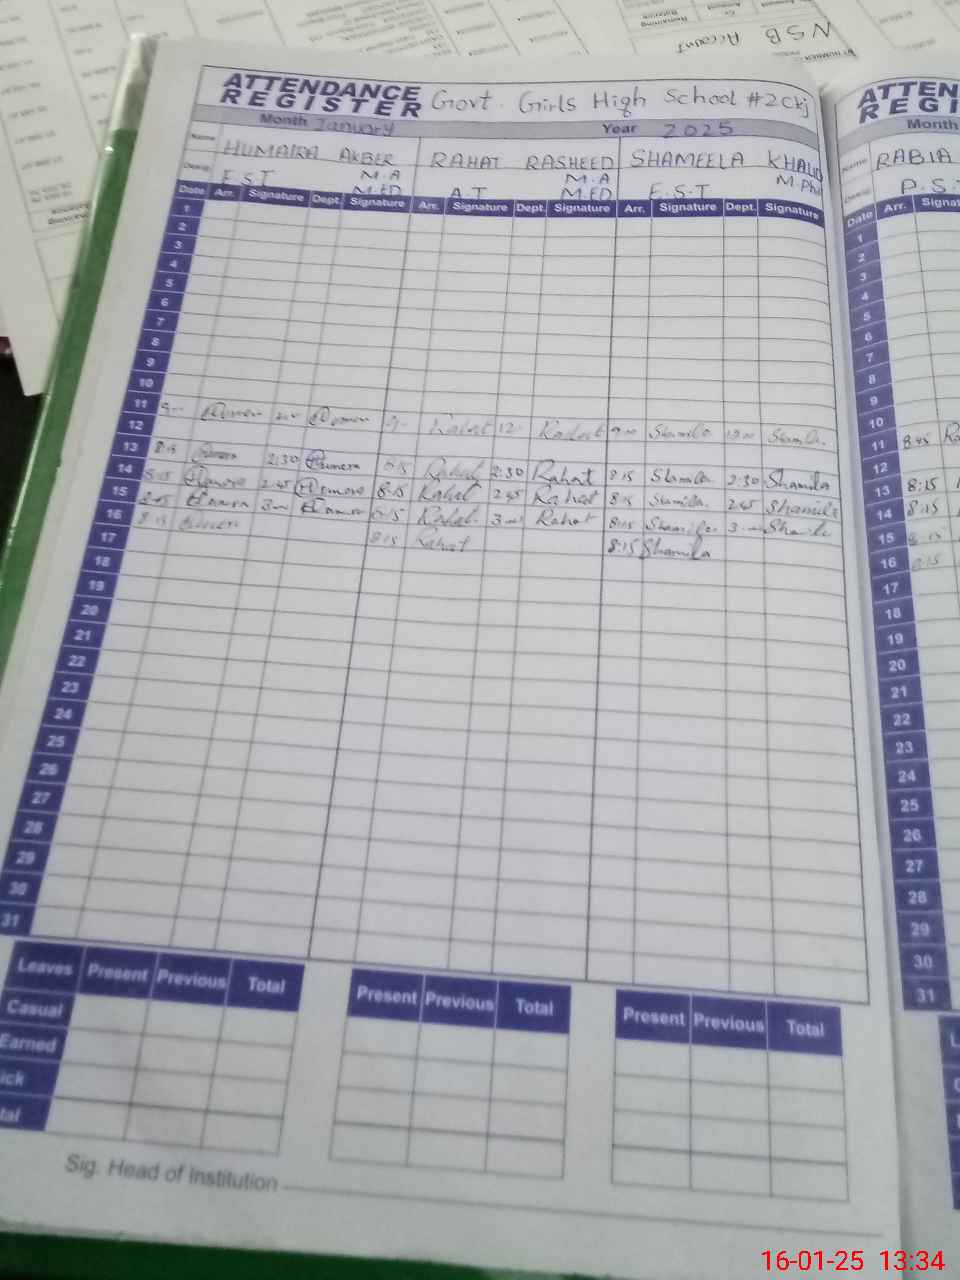 NSB Account
ATTENDANCE REGISTER Govt. Girls High School #2 Ckj
Month January Year 2025
Name HUMAIRA AKBER RAHAT RASHEED SHAMEELA KHALID
M.A M.A M.Phil
Desig E.S.T M.ED A.T M.ED E.S.T
Date Arr. Signature Dept. Signature Arr. Signature Dept. Signature Arr. Signature Dept. Signature
1
2
3
4
5
6
7
8
9
10
11 Rahat 12 Rahat 9:00 Shamila Shamila
12
13 8:15 2:30 8:15 Rahat 2:30 Rahat 8:15 Shamila 2:30 Shamila
14 8:15 2:45 8:15 Rahat 2:45 Rahat 8:15 Shamila 2:45 Shamila
15 8:15 3:00 8:15 Rahat 3:00 Rahat 8:15 Shamila 3:00 Shamila
16 8:15 8:15 Rahat 8:15 Shamila
17
18
19
20
21
22
23
24
25
26
27
28
29
30
31
Leaves Present Previous Total Present Previous Total Present Previous Total
Casual
Earned
ick
tal
Sig. Head of Institution
ATTEN
REGI
Month
Name RABIA
Desig P.S.T
Date Arr. Signat
1
2
3
4
5
6
7
8
9
10
11 8:45
12
13 8:15
14 8:15
15 8:15
16 8:15
17
18
19
20
21
22
23
24
25
26
27
28
29
30
31
16-01-25 13:34